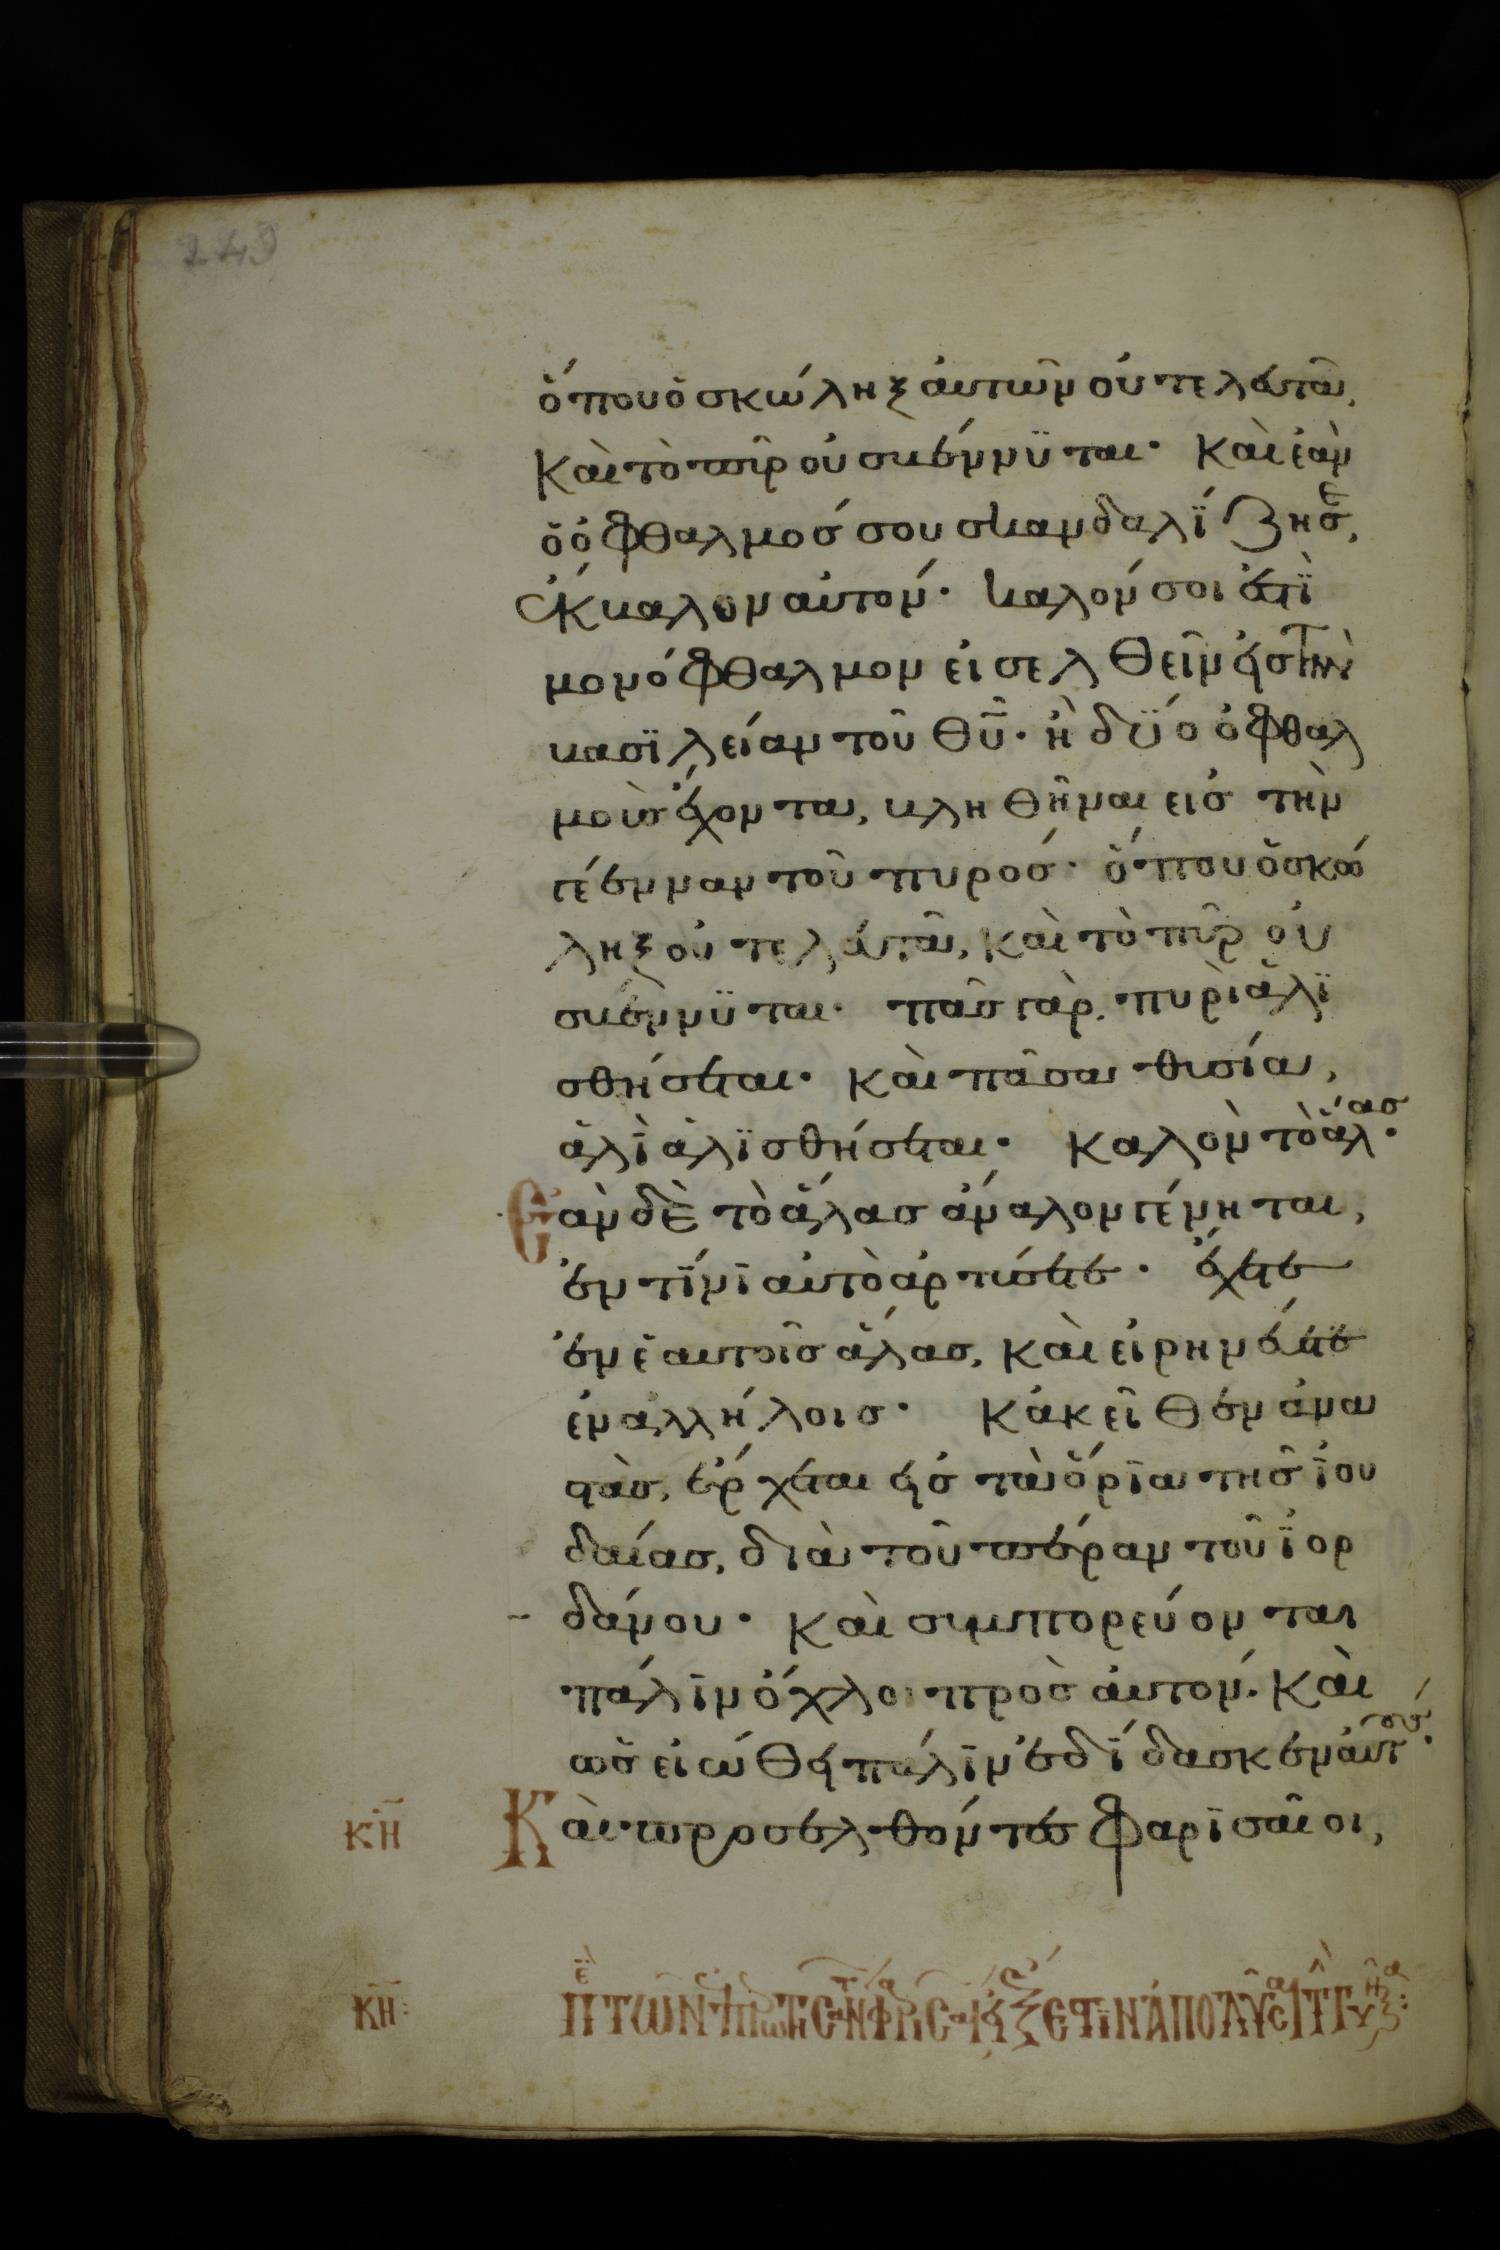 249
ὅπου ὁ σκώληξ αὐτῶν οὐ τελευτᾶ,
καὶ τὸ πῦρ οὐ σβέννϋται· καὶ ἐὰν
ὁ ὀφθαλμός σου σκανδαλίζη σε,
ἔκβαλον αὐτόν· καλόν σοι ἐστὶ
μονόφθαλμον εἰσελθεῖν εἰς τὴν
βασϊλείαν τοῦ θῦ· ἢ δύο ὀφθαλ
μοὺς ἔχοντα, βληθῆναι εἰς τὴν
γέενναν τοῦ πυρός· ὅπου ὁ σκώ
ληξ οὐ τελευτᾶ, καὶ τὸ πῦρ οὐ
σβέννϋται· πᾶς γὰρ πυρὶ ἁλϊ
σθήσεται· καὶ πᾶσα θυσία,
ἁλὶ ἁλϊσθήσεται· καλὸν τὸ ἅλας·
Ἐὰν δὲ τὸ ἅλας ἄναλον γένηται,
ἐν τίνϊ αὐτὸ ἀρτύσετε· ἔχετε
ἐν ἑαυτοῖς ἅλας, καὶ εἰρηνεύετε
ἐν ἀλλήλοις· κἀκεῖθεν ἀνα
στὰς, ἔρχεται εἰς τὰ ὅρϊα τῆς ϊου
δαίας, διὰ τοῦ πέραν τοῦ ϊορ
δάνου· καὶ συμπορεύονται
πάλϊν ὄχλοι πρὸς αὐτόν. καὶ
ὡς εἰώθει πάλϊν ἐδίδασκεν αὐτούς·
κη Καὶ προσελθόντες φαρϊσαῖοι,
κη: